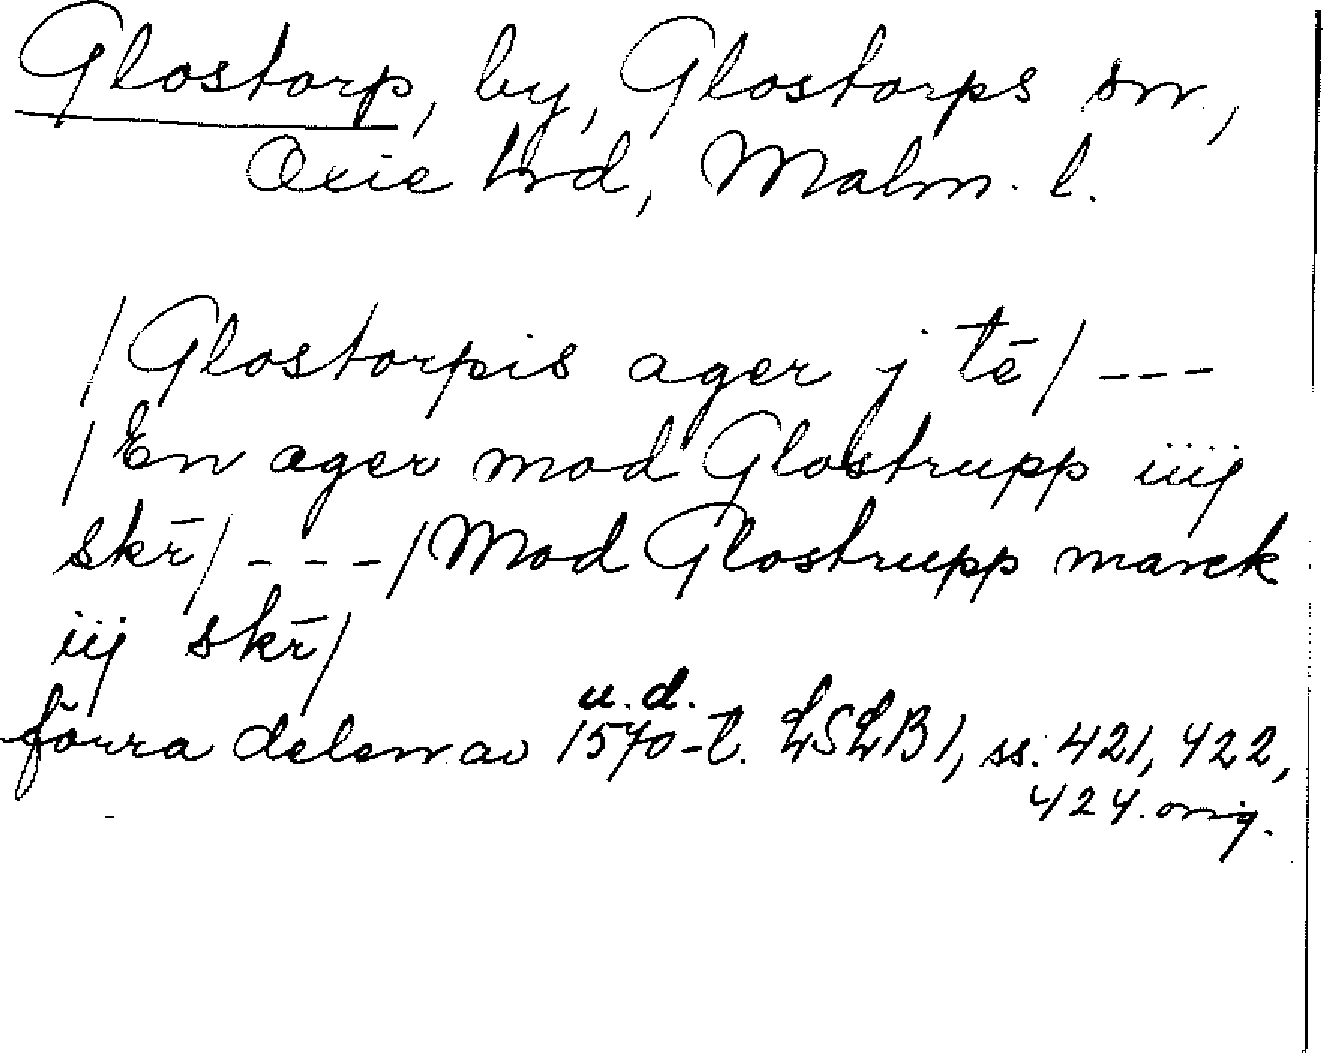 Glostorp, by, Glostorps sn,
Oxie hrd, Malm. l.
/Glostorpis ager j tē/ ---
/En ager mod Glostrupp iiij
skr̄/ - - - /Mod Glostrupp marck
iij skr̄/
u.d.
förra delen av 1570-t. LSLB 1, ss. 421, 422,
424. orig.